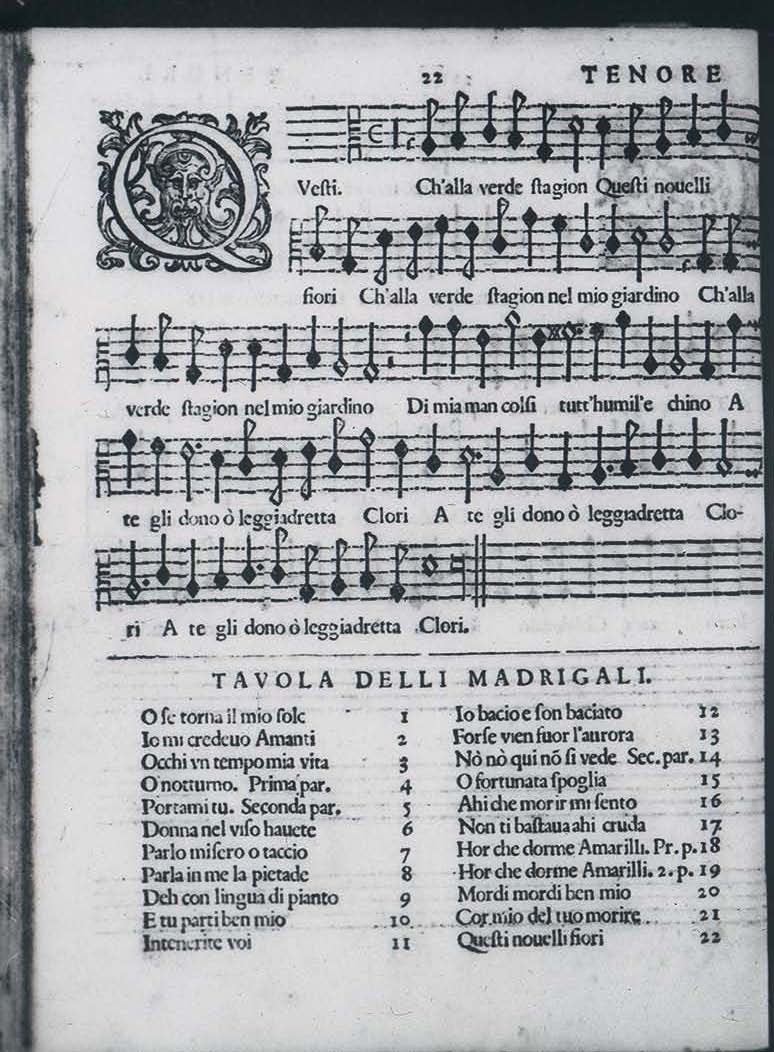 22 TENORE
QVesti. Ch'alla verde stagion Questi nouelli
fiori Ch'alla verde stagion nel mio giardino Ch'alla
verde stagion nel mio giardino Di mia man colsi tutt'humil'e chino A
te gli dono ò leggiadretta Clori A te gli dono ò leggiadretta Clo-
ri A te gli dono ò leggiadretta Clori.
TAVOLA DELLI MADRIGALI.
O se torna il mio sole 1
Io mi credeuo Amanti 2
Occhi vn tempo mia vita 3
O notturno. Prima par. 4
Portami tu. Seconda par. 5
Donna nel viso hauete 6
Parlo misero o taccio 7
Parla in me la pietade 8
Deh con lingua di pianto 9
E tu parti ben mio 10
Intenerite voi 11
Io bacio e son baciato 12
Forse vien fuor l'aurora 13
Nò nò qui nõ si vede Sec. par. 14
O fortunata spoglia 15
Ahi che morir mi sento 16
Non ti bastaua ahi cruda 17
Hor che dorme Amarilli. Pr. p. 18
Hor che dorme Amarilli. 2. p. 19
Mordi mordi ben mio 20
Cor mio del tuo morire 21
Questi nouelli fiori 22